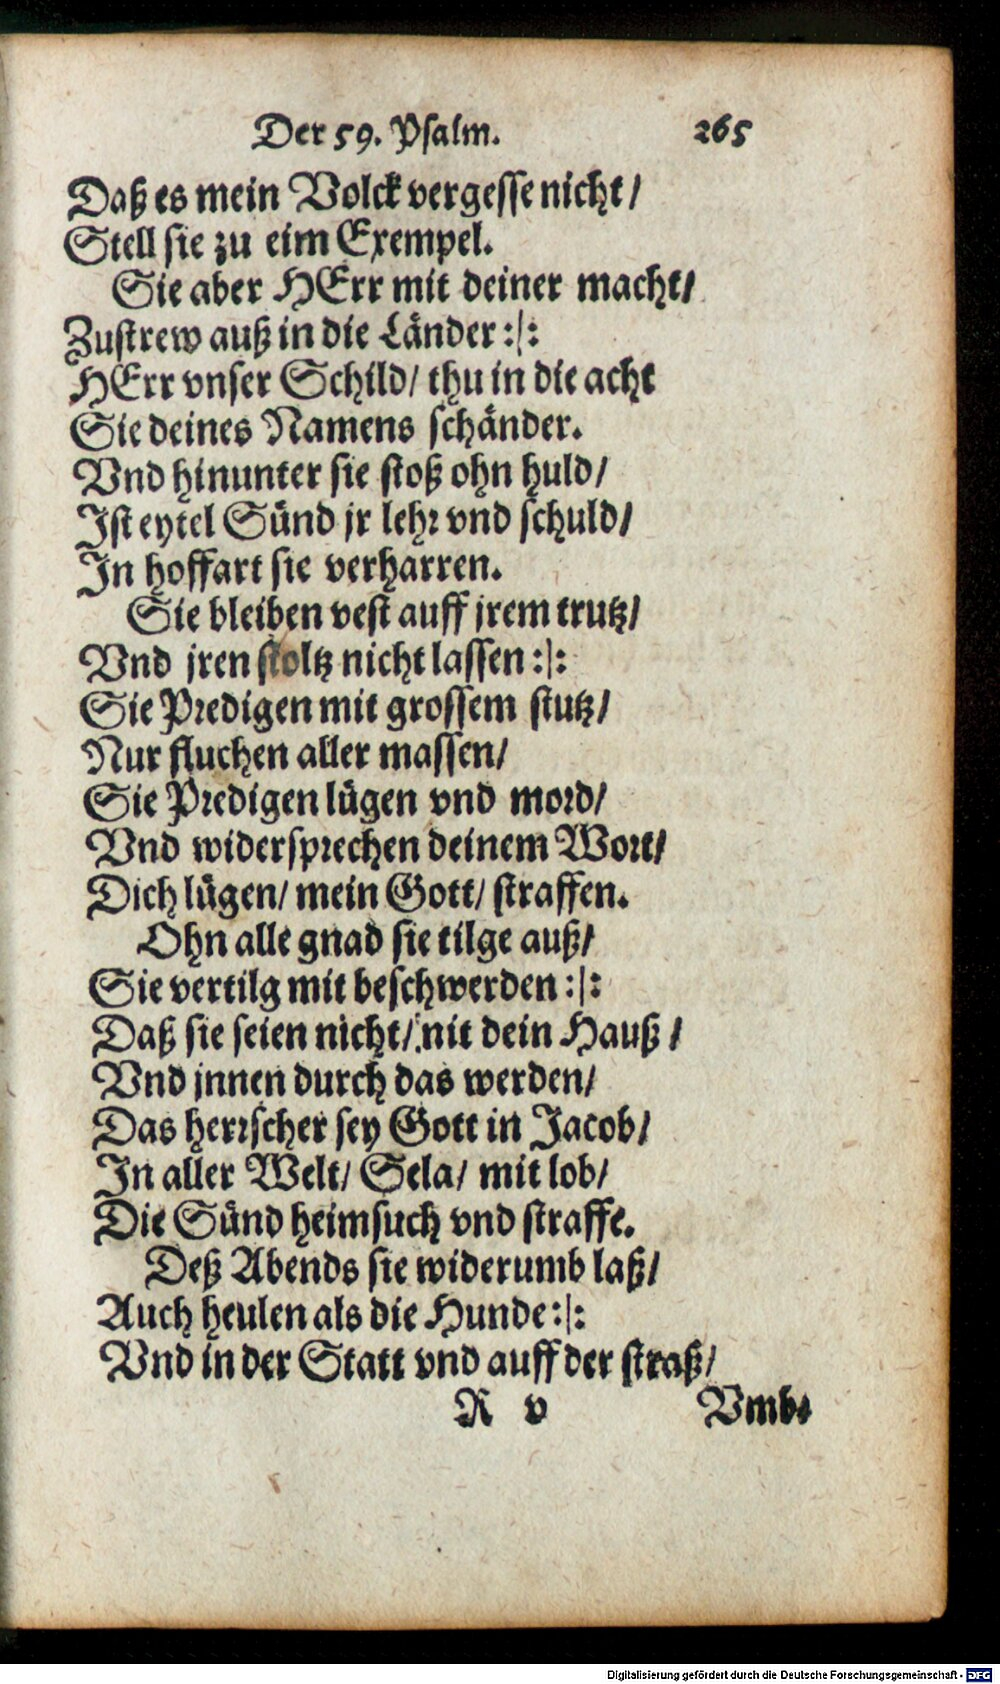 Der 59. Psalm. 265
Daß es mein Volck vergesse nicht/
Stell sie zu eim Exempel.
Sie aber HErr mit deiner macht/
Zustrew auß in die Länder :|:
HErr vnser Schild/ thu in die acht
Sie deines Namens schänder.
Vnd hinunter sie stoß ohn huld/
Ist eytel Sünd jr lehr vnd schuld/
In hoffart sie verharren.
Sie bleiben vest auff jrem trutz/
Vnd jren stoltz nicht lassen :|:
Sie Predigen mit grossem stutz/
Nur fluchen aller massen/
Sie Predigen lügen vnd mord/
Vnd widersprechen deinem Wort/
Dich lügen/ mein Gott/ straffen.
Ohn alle gnad sie tilge auß/
Sie vertilg mit beschwerden :|:
Daß sie seien nicht/ nit dein Hauß/
Vnd jnnen durch das werden/
Das herrscher sey Gott in Jacob/
In aller Welt/ Sela/ mit lob/
Die Sünd heimsuch vnd straffe.
Deß Abends sie widerumb laß/
Auch heulen als die Hunde :|:
Vnd in der Statt vnd auff der straß/
R v Vmb-
Digitalisierung gefördert durch die Deutsche Forschungsgemeinschaft - DFG